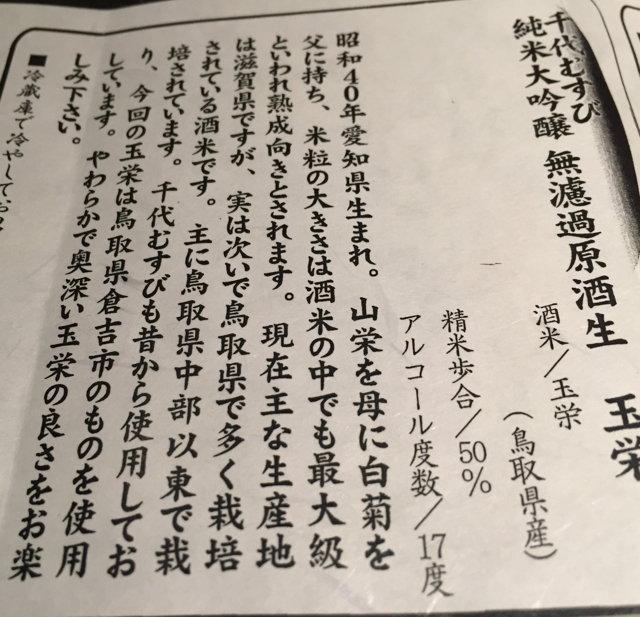 千代むすび
純米大吟醸 無濾過原酒生 玉栄
酒米／玉栄
（鳥取県産）
精米歩合／50％
アルコール度数／17度
昭和40年愛知県生まれ。山栄を母に白菊を
父に持ち、米粒の大きさは酒米の中でも最大級
といわれ熟成向きとされます。現在主な生産地
は滋賀県ですが、実は次いで鳥取県で多く栽培
されている酒米です。主に鳥取県中部以東で栽
培されています。千代むすびも昔から使用してお
り、今回の玉栄は鳥取県倉吉市のものを使用
しています。やわらかで奥深い玉栄の良さをお楽
しみ下さい。
■冷蔵庫で冷やしてお